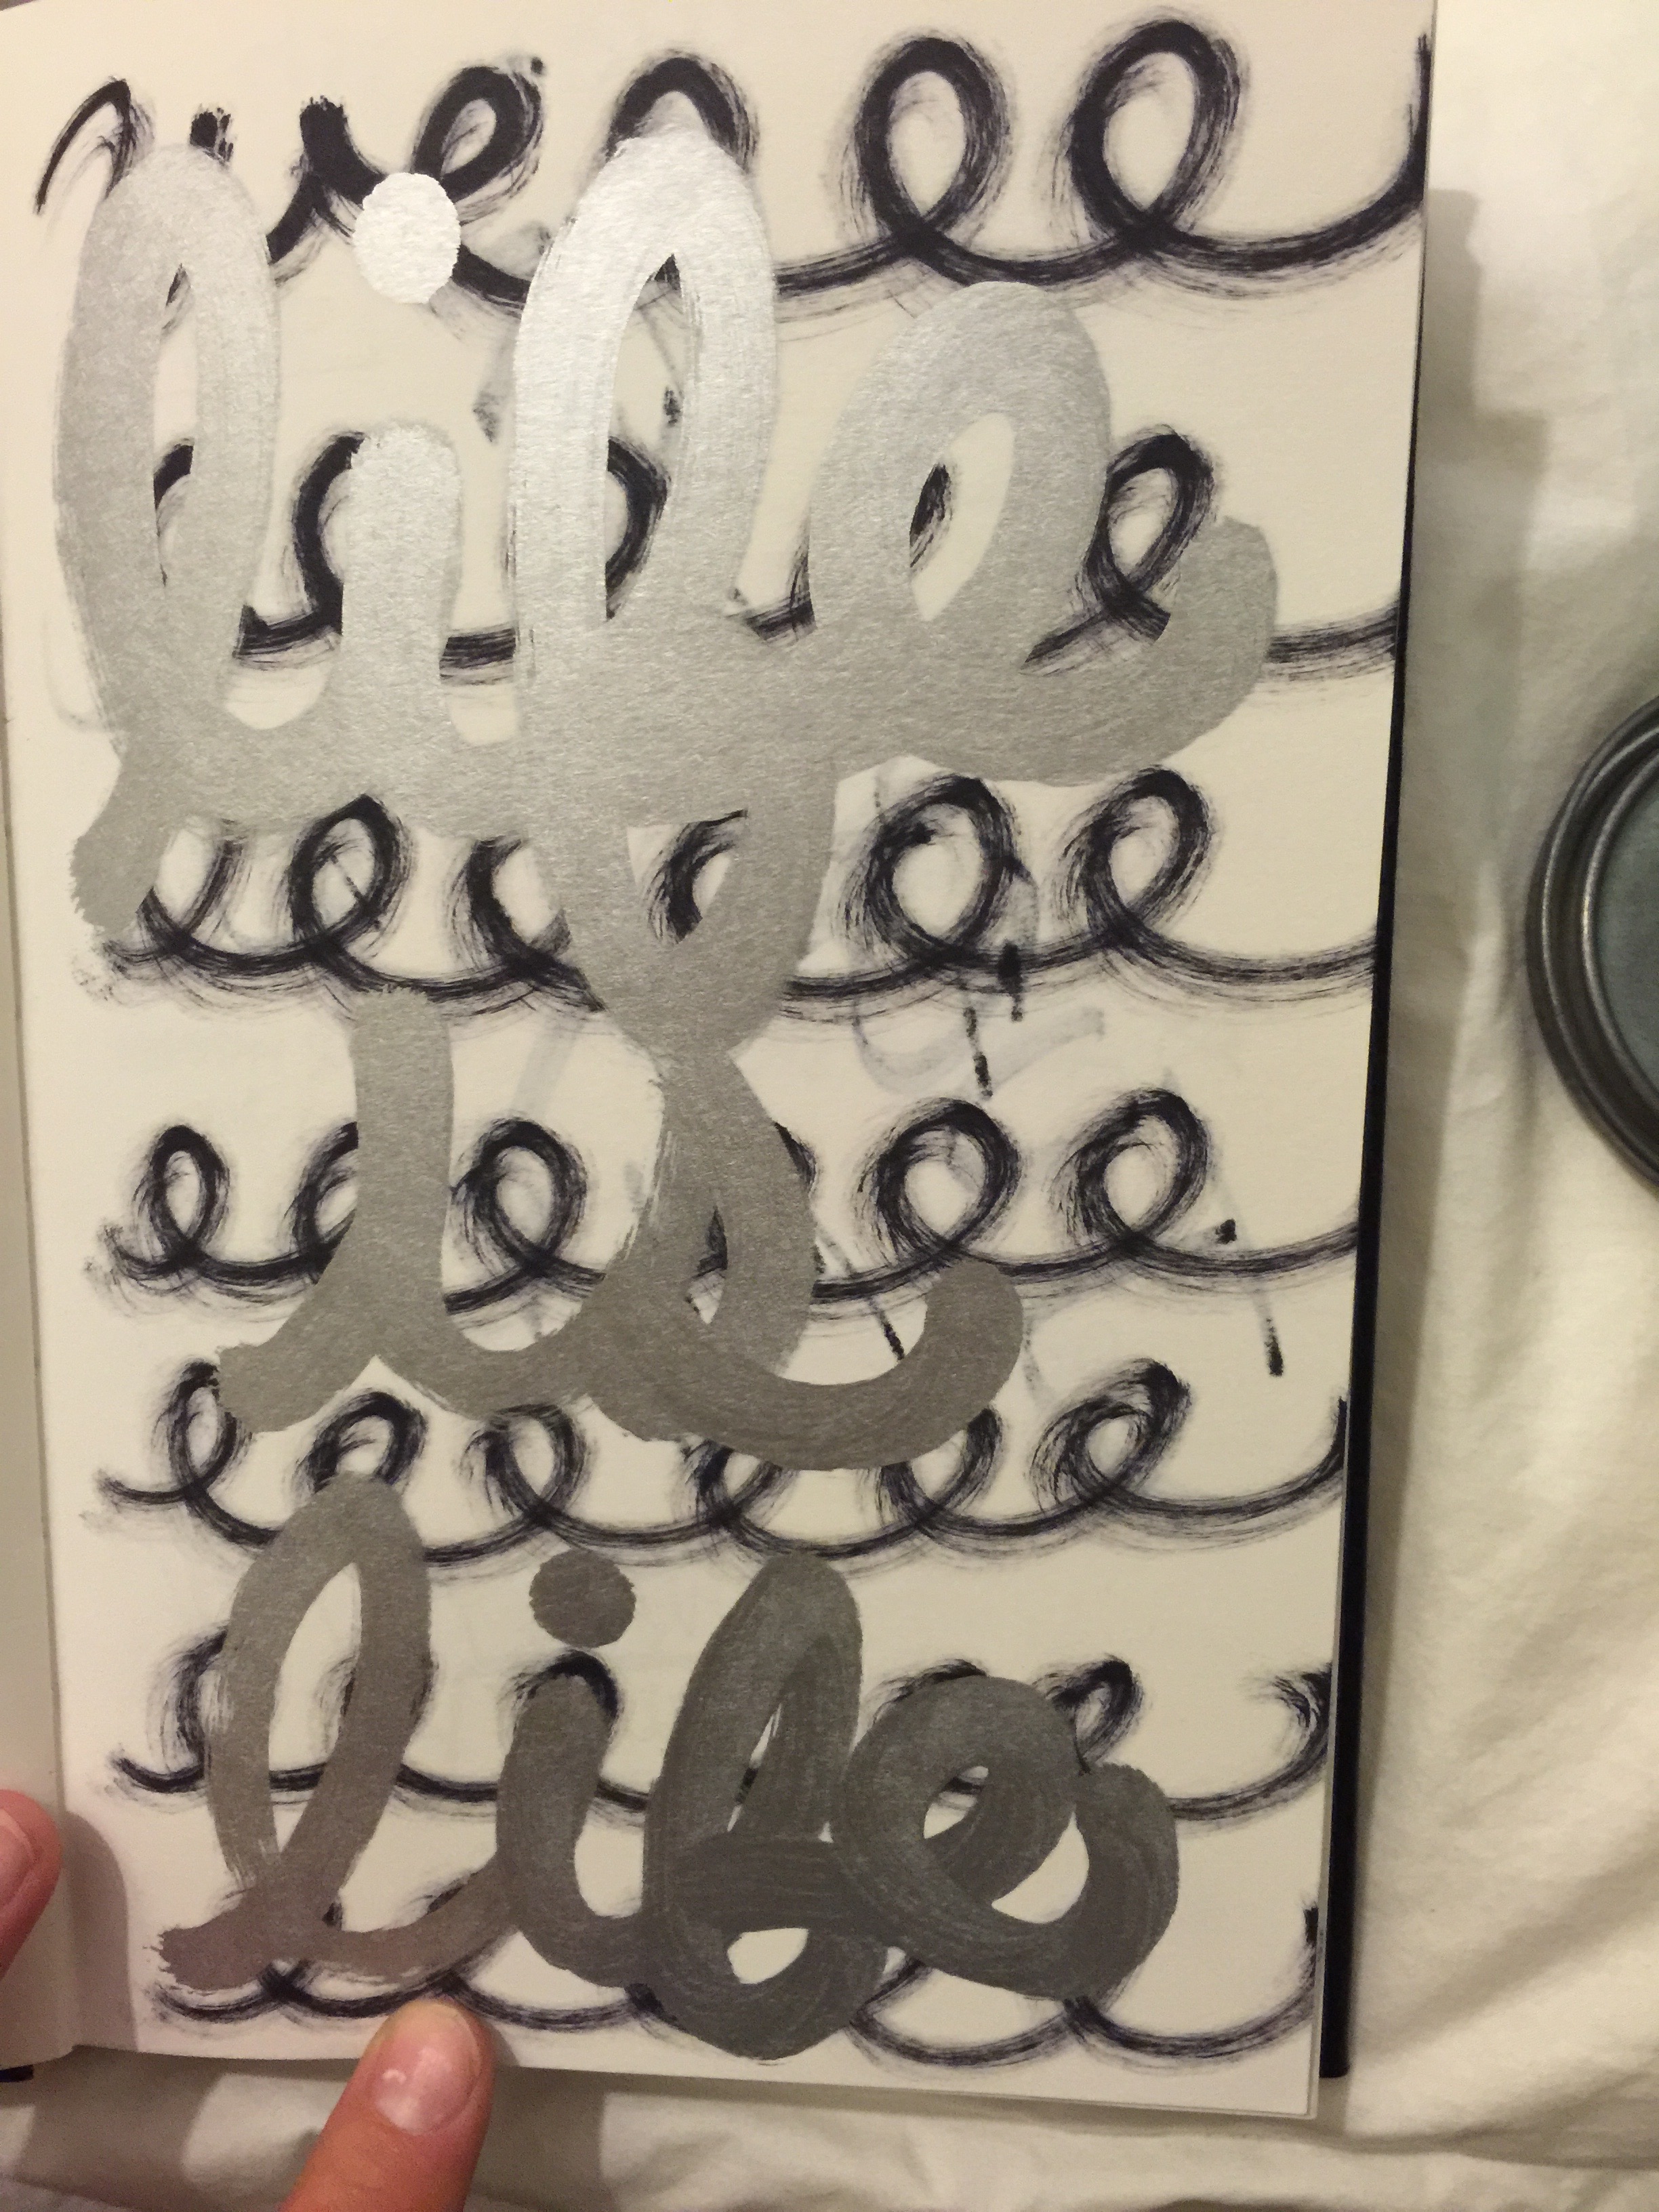 life
is
life